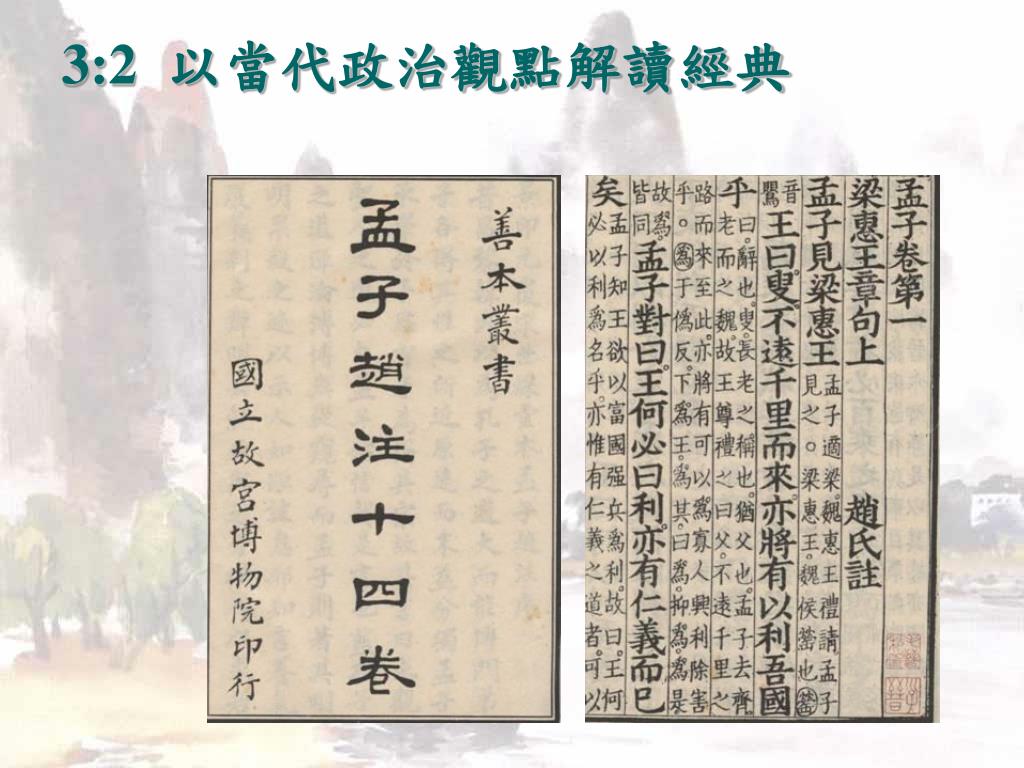 3:2 以當代政治觀點解讀經典
善本叢書
孟子趙注十四卷
國立故宮博物院印行
孟子卷第一
梁惠王章句上 趙氏註
孟子見梁惠王 孟子適梁魏惠王禮請孟子
見之。梁惠王魏侯罃也罃
音
鸎 王曰叟不遠千里而來亦將有以利吾國
乎 曰辭也叟長老之稱也猶父也孟子去齊
老而之魏故王尊禮之曰父不遠千里之
路而來至此亦將有可以爲寡人興利除害
乎。爲于僞反下爲王爲其曰爲抑爲爲是
故爲
皆同 孟子對曰王何必曰利亦有仁義而已
矣 孟子知王欲以富國强兵爲利故曰王何
必以利爲名乎亦惟有仁義之道者可以